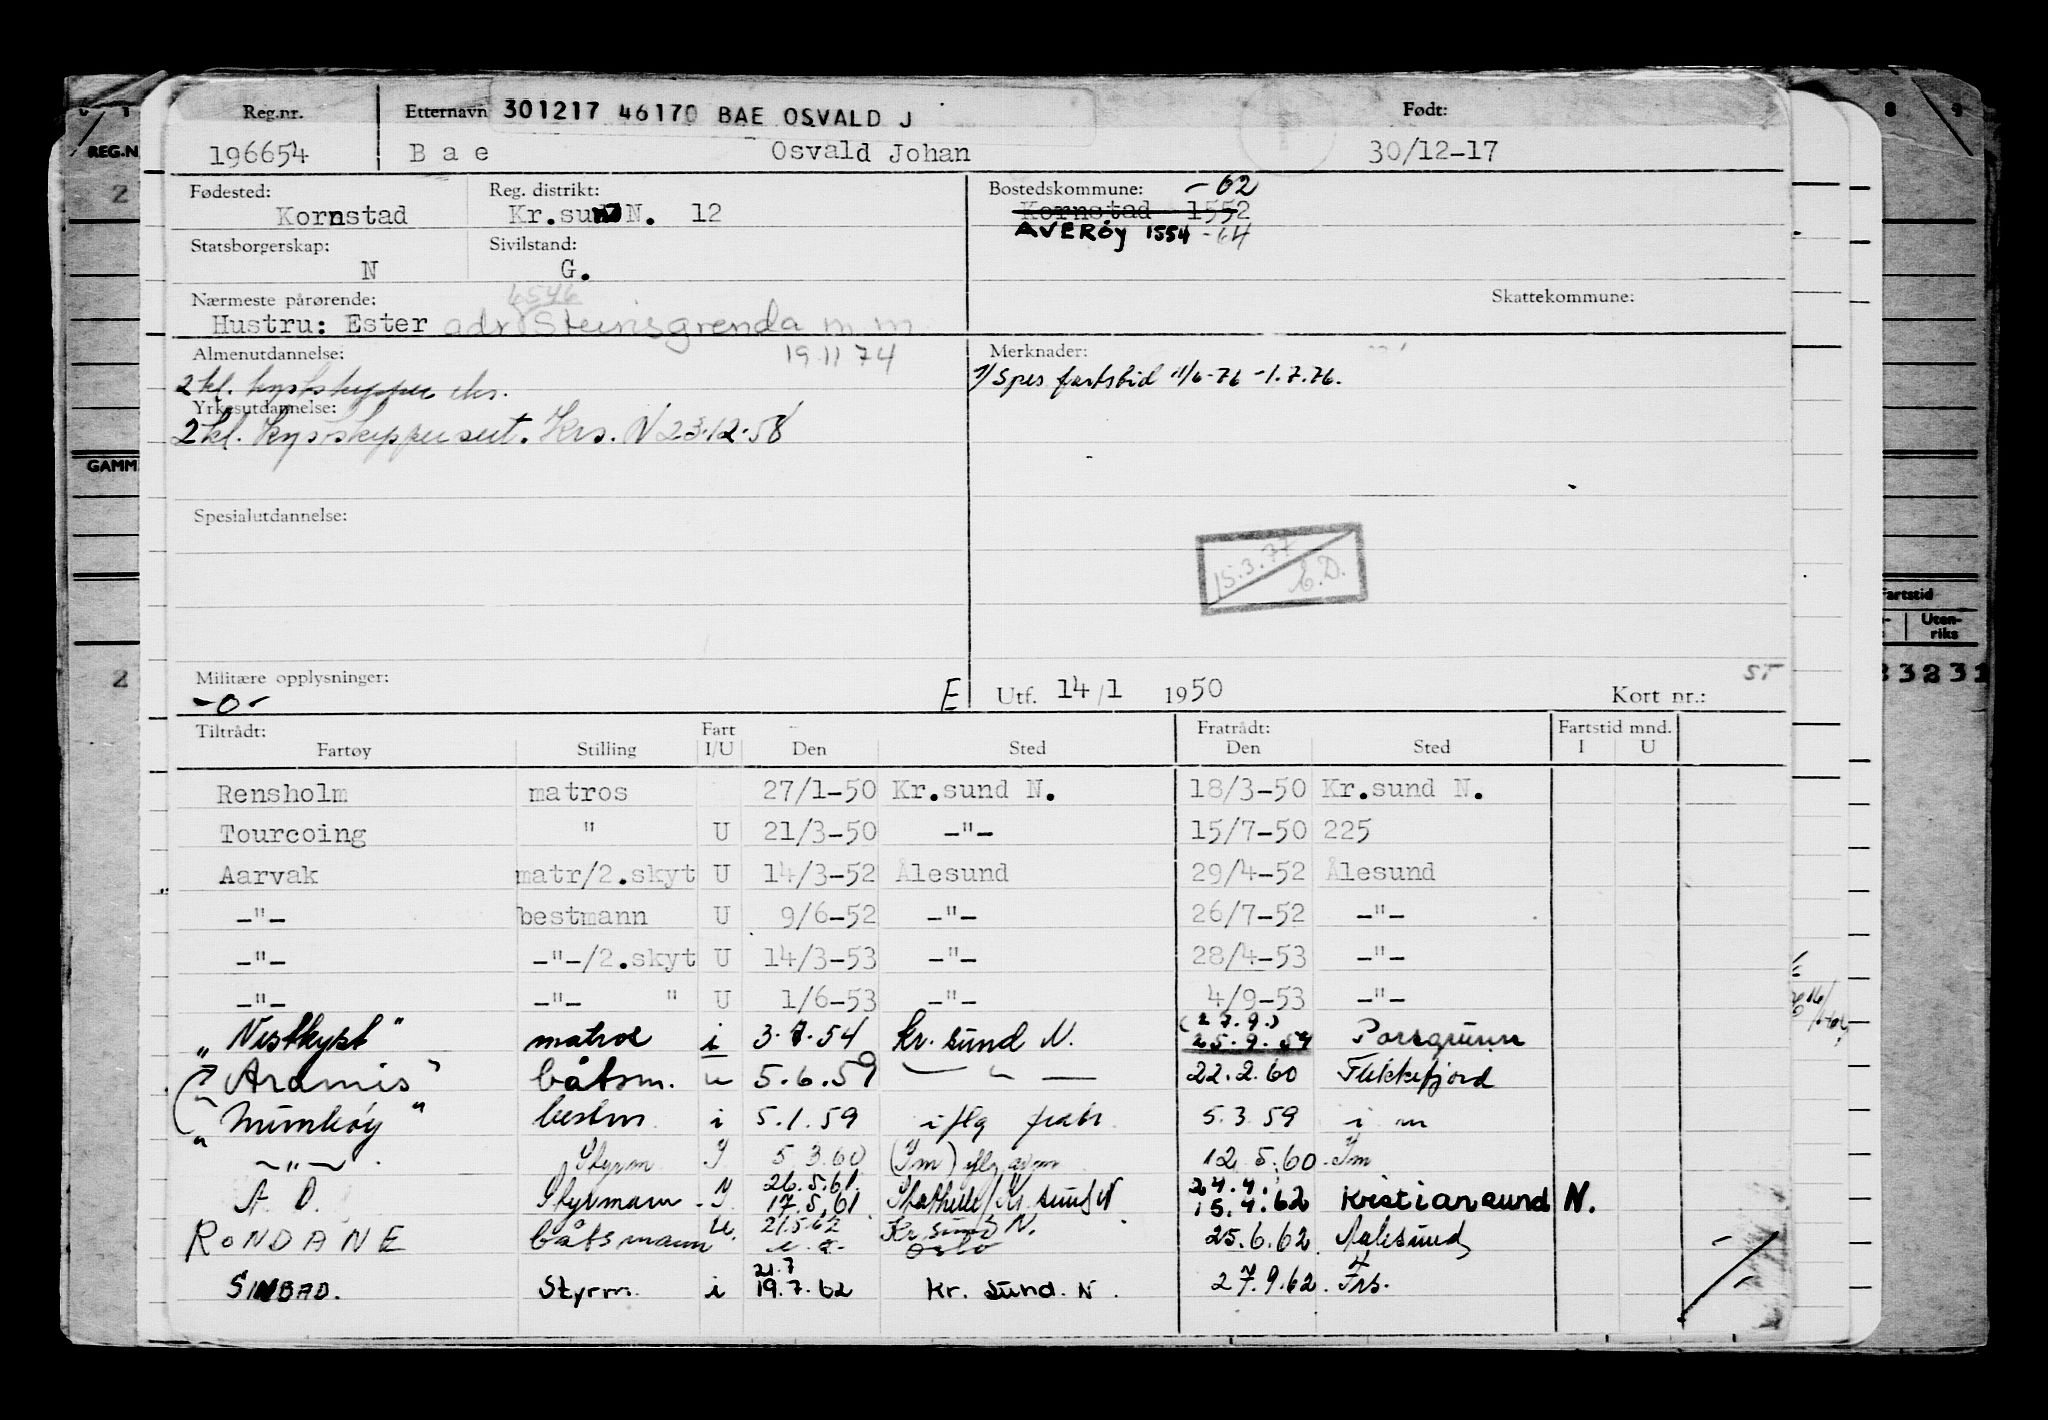 Reg.nr. Etternavn 301217 46170 BAE OSVALD J Født:
196654 Bae Osvald Johan 30/12-17
Fødested: Reg. distrikt: Bostedskommune: -62
Kornstad Kr.sund N. 12 Kornstad 1552
AVERØY 1554 -64
Statsborgerskap: Sivilstand:
N G.
Nærmeste pårørende: 6546 Skattekommune:
Hustru: Ester adr Steinsgrenda m m
Almenutdannelse: 19 11 74 Merknader:
2 kl. kystskipper eks. 1/ Spes fartstid 11/6-76 - 1.7.76.
Yrkesutdannelse:
2 kl. Kystskippersert. Krs. N 23.12.58
Spesialutdannelse:
15.3.77
Militære opplysninger:
-0- E Utf. 14/1 1950 Kort nr.: ST
Tiltrådt: Fart Fratrådt: Fartstid mnd.
Fartøy Stilling I/U Den Sted Den Sted I U
Rensholm matros 27/1-50 Kr.sund N. 18/3-50 Kr.sund N.
Tourcoing " U 21/3-50 -"- 15/7-50 225
Aarvak matr/2.skyt U 14/3-52 Ålesund 29/4-52 Ålesund
-"- bestmann U 9/6-52 -"- 26/7-52 -"-
-"- -"-/2.skyt U 14/3-53 -"- 28/4-53 -"-
-"- -"- " U 1/6-53 -"- 4/9-53 -"-
(27.9.)
"Vestkyst" matros i 3.7.54 Kr. sund N. 25.9.54 Porsgrunn
"Aramis" båtsm. u 5.6.59 — " — 22.2.60 Flekkefjord
" bestm. i 5.1.59 iflg fratr. 5.3.59 i m
-"- Styrm I 5 3.60 (Im) iflg 12.5.60. Im
26.5.61. 24.4.
A. D. Styrmann - I. 17.5.61 Stathelle/Kr. sund N 15.4.62 Kristiansund N.
RONDANE båtsmann U. 21.5.62 Kr sund N. Oslo 25.6.62. Aalesund
21.7
SINBAD. Styrm. i 19.7.62 Kr. sund. N. 27.9.62. Trh.
REG.N
GAMM
Fartstid
Uten-
riks